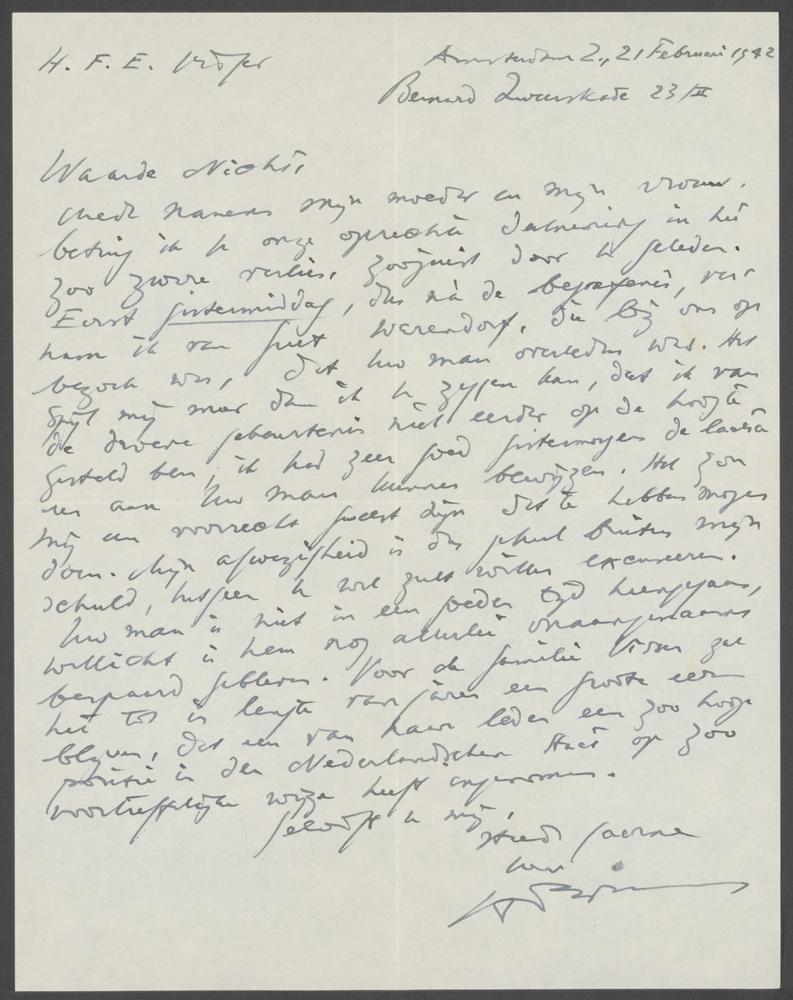 H. F. E. Visser
Amsterdam Z., 21 Februari 1942
Bernard Zweerskade 23/II
Waarde Nicht,
Mede namens mijn moeder en mijn vrouw,
betuig ik U onze oprechte deelneming in het
zoo zware verlies, zoojuist door U geleden.
Eerst gistermiddag, dus ná de begrafenis, ver-
nam ik van Piet Warendorf, die bij ons op
bezoek was, dat Uw man overleden was. Het
spijt mij meer dan ik U zeggen kan, dat ik van
de droeve gebeurtenis niet eerder op de hoogte
gesteld ben; ik had zeer goed gistermorgen de laatste
eer aan Uw man kunnen bewijzen. Het zou
mij een voorrecht geweest zijn dit te hebben mogen
doen. Mijn afwezigheid is dus geheel buiten mijn
schuld, hetgeen U wel zult willen excuseeren.
Uw man is niet in een goeden tijd heengegaan,
wellicht is hem nog allerlei onaangenaams
bespaard gebleven. Voor de familie Visser zal
het tot in lengte van jaren een groote eer
blijven, dat een van haar leden een zoo hooge
positie in den Nederlandschen Staat op zoo
voortreffelijke wijze heeft ingenomen.
Gelooft U mij,
Steeds gaarne
Uw